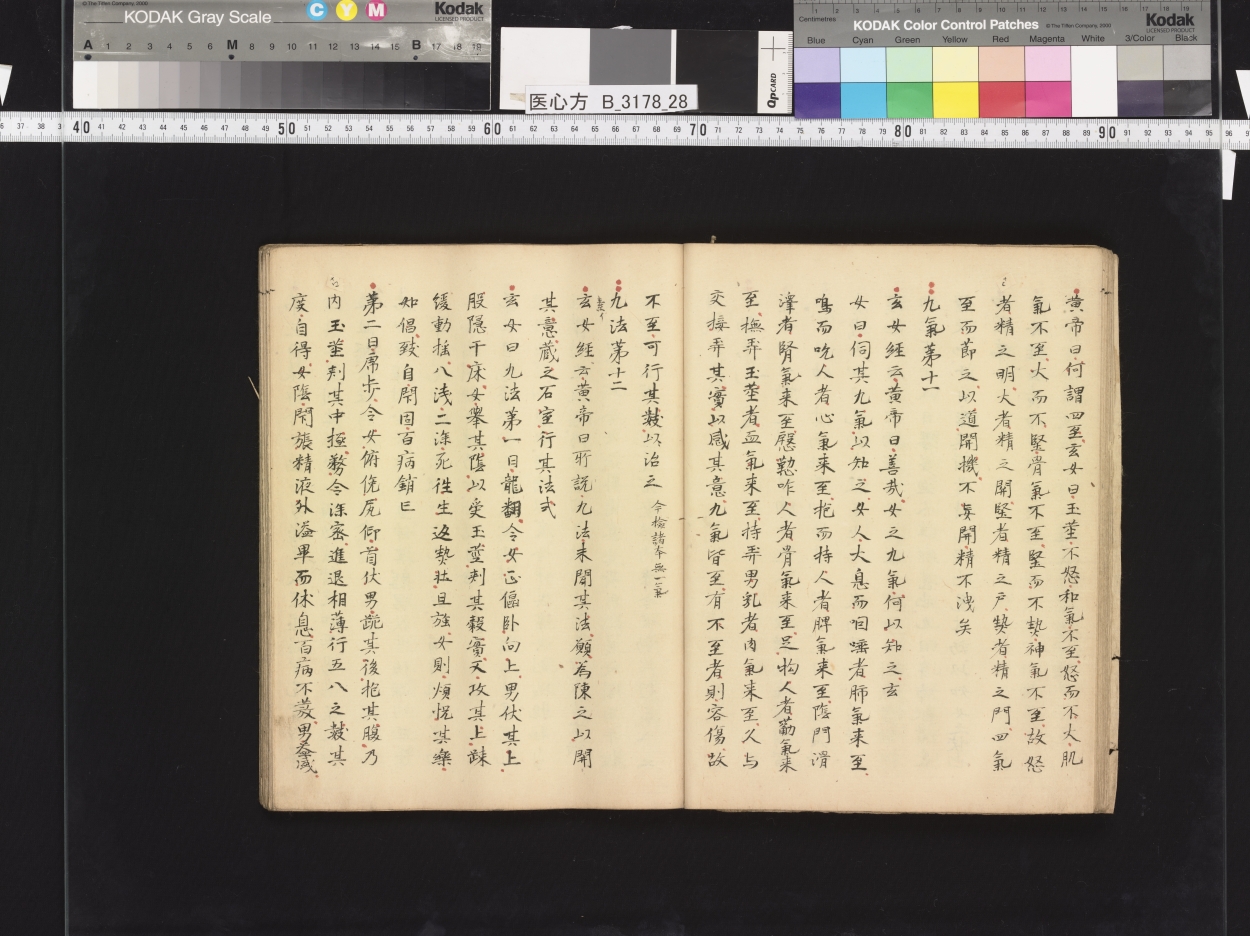 黄帝曰何謂四至玄女曰玉莖不怒和氣不至怒而不大肌
氣不至大而不堅骨氣不至堅而不𫝑神氣不至故怒
者精之明大者精之開堅者精之戸𫝑者精之門四氣
至而莭之以道開機不妄開精不洩矣
九氣苐十一
玄女經云黄帝曰善㢤女之九氣何以知之玄
女曰伺其九氣以知之女人大息而咽唾者肺氣来至
鳴而吮人者心氣来至抱而持人者脾氣来至陰門滑
澤者腎氣来至慇懃咋人者骨氣来至足拘人者筋氣来
至撫弄玉莖者血氣来至持弄男乳者肉氣来至久与
交接弄其實以感其意九氣皆至有不至者則容傷故
不至可行其𢿙以治之 今檢諸本無一氣
九法苐十二
玄女經云黄帝曰所説九法未聞其法願為陳之以開
其意蔵之石室行其法式
玄女曰九法苐一曰龍飜令女正偃卧向上男伏其上
股隠于床女舉其陰以受玉莖刾其穀實又攻其上踈
緩動揺八浅二深死徃生返𫝑壮且強女則煩悦其樂
如倡致自閇固百病銷亡
苐二曰乕歩令女俯俛尻仰首伏男跪其後抱其腹乃
内玉莖刾其中極務令深密進退相薄行五八之𢿙其
度自得女陰閇張精液外溢畢而休息百病不發男益盛
医心方 B_3178_28
KODAK Gray Scale
C Y M
Kodak
LICENSED PRODUCT
A 1 2 3 4 5 6 M 8 9 10 11 12 13 14 15 B 17 18 19
QPCARD
KODAK Color Control Patches
© The Tiffen Company, 2000
Kodak
LICENSED PRODUCT
Centimetres
Blue Cyan Green Yellow Red Magenta White 3/Color Black